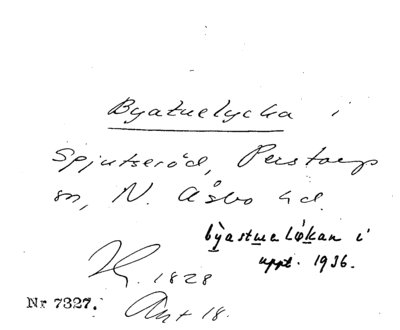 Byatuelycka i
Spjutseröd, Perstorps
sn, N. Åsbo hd.
byastueløkan i
uppt. 1936.
1828
Nr 7327.
Ant 18.